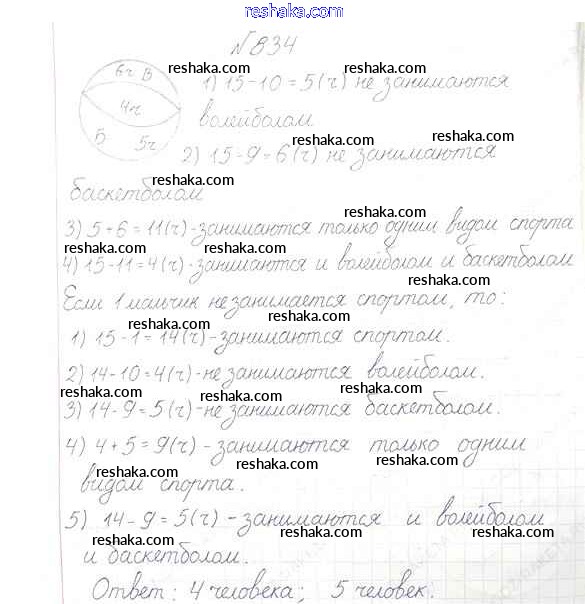 reshaka.com
№834
6ч В reshaka.com 1) 15-10=5(ч) не занимаются
4ч reshaka.com
волейболом
Б 5ч reshaka.com reshaka.com
2) 15-9=6(ч) не занимаются
reshaka.com
баскетболом
reshaka.com
3) 5+6=11(ч)-занимаются только одним видом спорта
reshaka.com reshaka.com
4) 15-11=4(ч)-занимаются и волейболом и баскетболом
reshaka.com
Если 1 мальчик не занимается спортом, то:
reshaka.com
1) 15-1=14(ч)-занимаются спортом.
reshaka.com
2) 14-10=4(ч)-не занимаются волейболом.
reshaka.com reshaka.com reshaka.com
3) 14-9=5(ч)-не занимаются баскетболом.
4) 4+5=9(ч)-занимаются только одним
reshaka.com reshaka.com
видом спорта.
5) 14-9=5(ч)-занимаются и волейболом
reshaka.com reshaka.com reshaka.com
и баскетболом.
Ответ: 4 человека; 5 человек.
reshaka.com